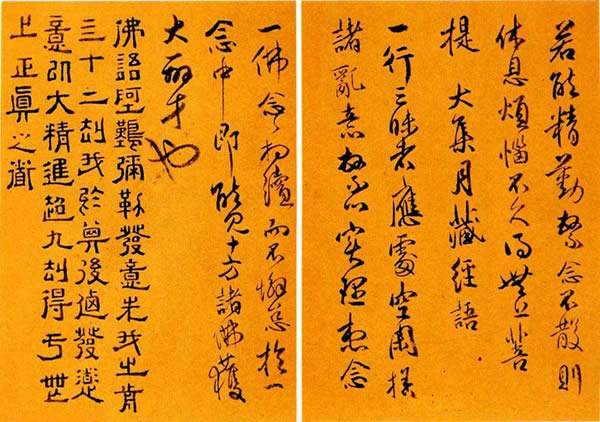 若能精勤繫念不散則
休息煩惱不久得無上菩
提 大集月藏經語
一行三昧者應處空閑捨
諸亂意 心實理想念
一佛念念相續而不懈怠於一
念中即能見十方諸佛獲
大辯才也
佛語阿難彌勒發意先我之前
三十二劫我於其後乃發道
意以大精進超九劫得于無
上正真之道